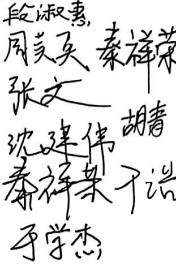 段淑惠
周美英 秦祥荣
张文
沈建伟 胡春
秦祥荣 于浩
于学杰